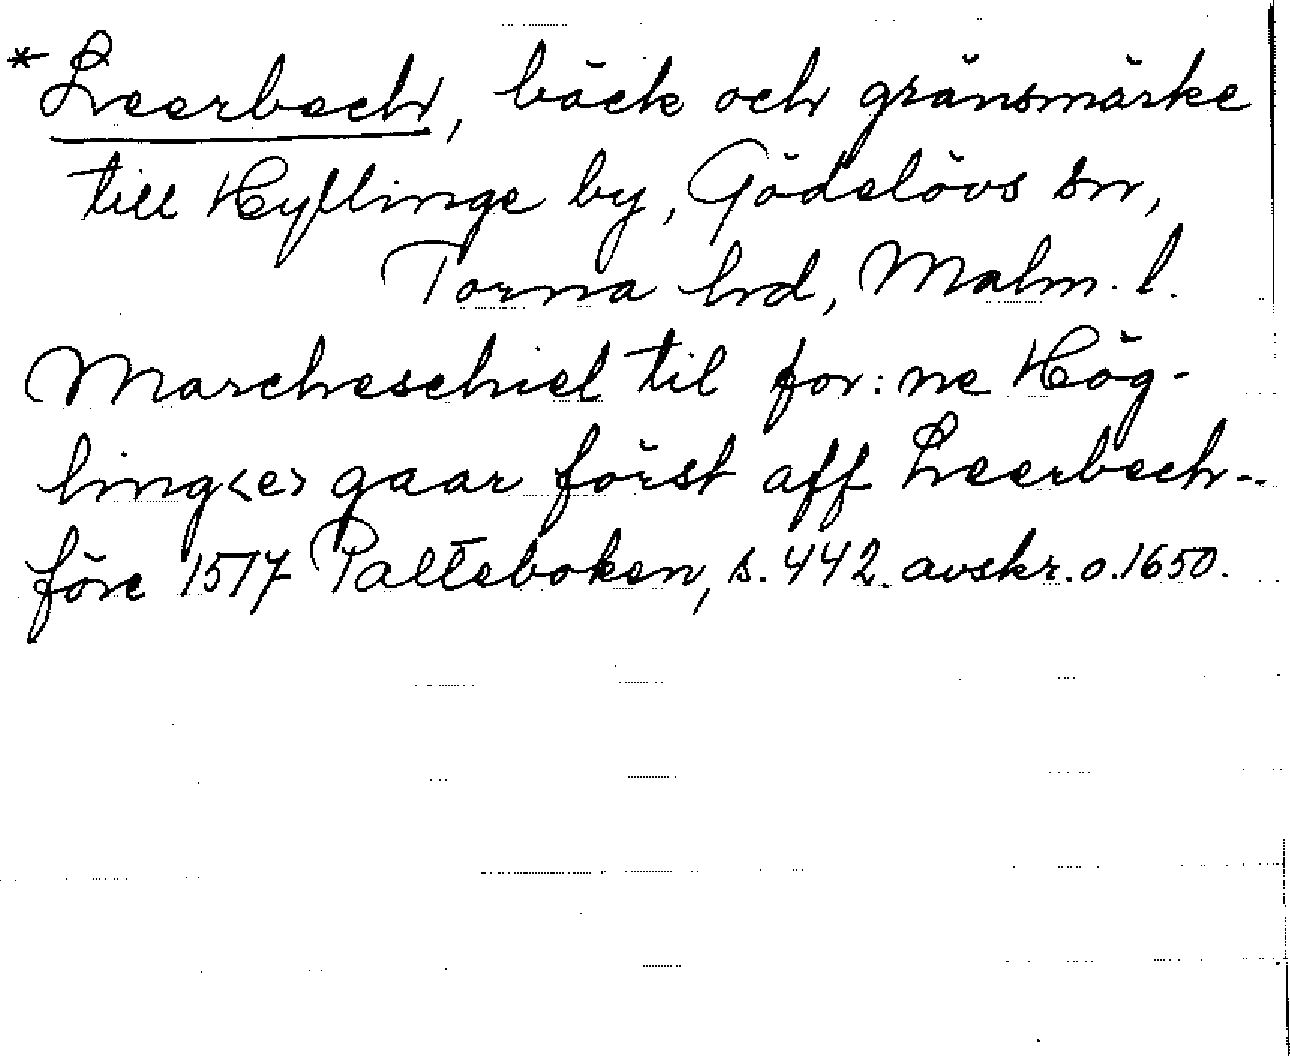 *Leerbech, bäck och gränsmärke
till Hyllinge by, Gödelövs sn,
Torna hd, Malm. l.
Marcheschiel til for:ne Hög-
ling<e> gaar först aff Leerbech--
före 1517 Palteboken, s. 442. avskr. o. 1650.